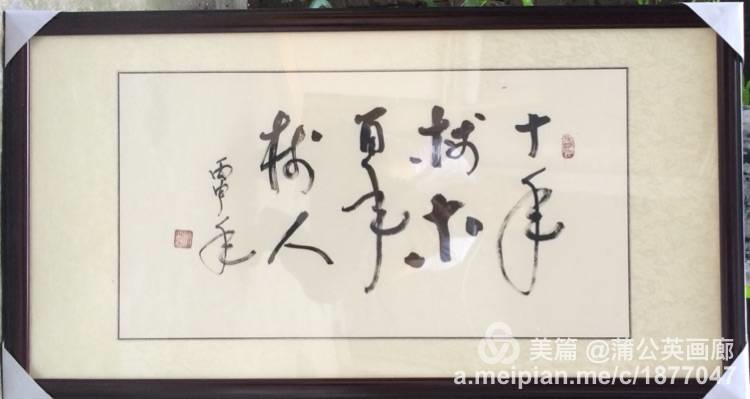 十年
树木
百年
树人
丙申年
美篇 @蒲公英画廊
a.meipian.me/c/1877047